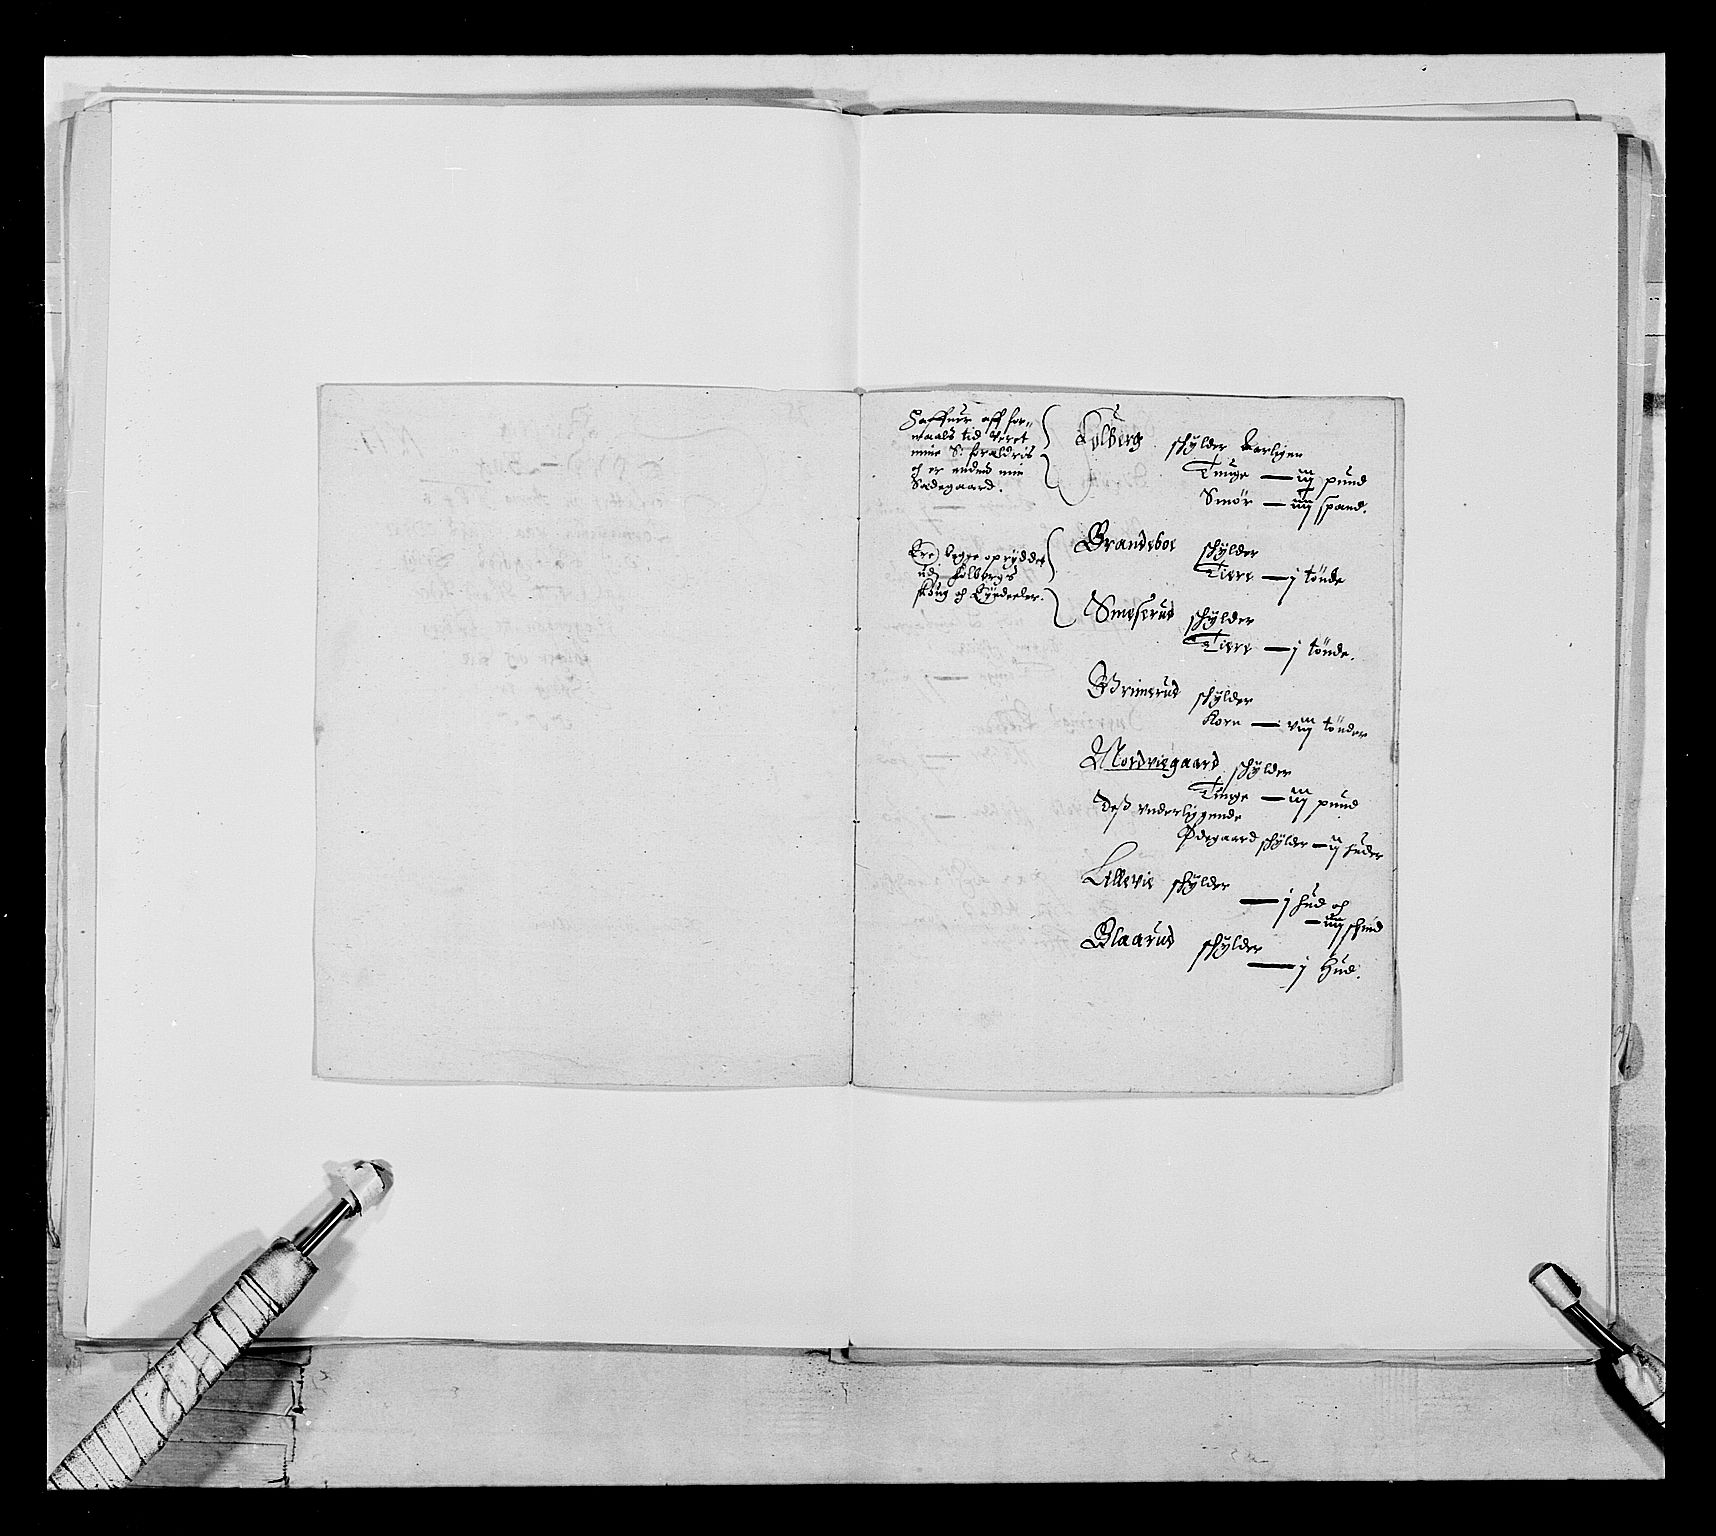 Haffuer aff for-
maals tid veret
mine S: forældris
och er endnu min
Sædegaard.
Folberg schylder aarligen
Tunge — iij pund
Smør — iiij spand.
Ere begge opryddet
udj Folbergs
skoug och Eyedeeler.
Brandsboe schylder
Tiere — j tönde
Smeserud schylder
Tiere — j tönde.
Grimerud schylder
Korn — viij tönder
Nordviegaard schylder
Tunge — iij pund
Dess vnderlygende
Ødegaard schylder — ij huder
Lillevie schylder
— j hud och
— iiij schind
Blaarud schylder
— j Hud.